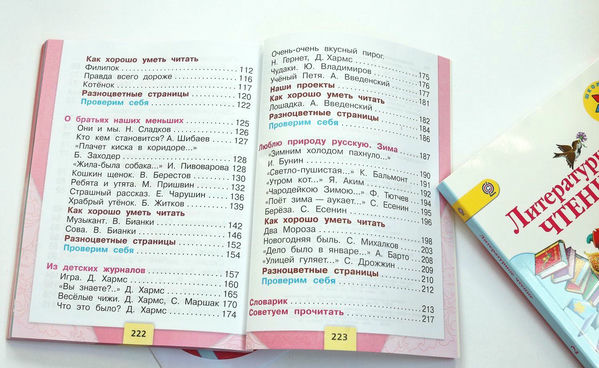 Как хорошо уметь читать
Филипок 112
Правда всего дороже 116
Котёнок 117
Разноцветные страницы 120
Проверим себя 122
О братьях наших меньших 125
Они и мы. Н. Сладков 126
Кто кем становится? А. Шибаев 127
«Плачет киска в коридоре…»
Б. Заходер 128
«Жила-была собака…» И. Пивоварова 128
Кошкин щенок. В. Берестов 130
Ребята и утята. М. Пришвин 132
Страшный рассказ. Е. Чарушин 136
Храбрый утёнок. Б. Житков 139
Как хорошо уметь читать
Музыкант. В. Бианки 142
Сова. В. Бианки 146
Разноцветные страницы 152
Проверим себя 154
Из детских журналов 157
Игра. Д. Хармс 160
«Вы знаете?..» Д. Хармс 164
Весёлые чижи. Д. Хармс, С. Маршак 170
Что это было? Д. Хармс 174
222
Очень-очень вкусный пирог.
Н. Гернет, Д. Хармс 175
Чудаки. Ю. Владимиров 176
Учёный Петя. А. Введенский 177
Наши проекты 181
Как хорошо уметь читать
Лошадка. А. Введенский 182
Разноцветные страницы 184
Проверим себя 186
Люблю природу русскую. Зима 187
«Зимним холодом пахнуло…»
И. Бунин 190
«Светло-пушистая…» К. Бальмонт 191
«Утром кот…» Я. Аким 192
«Чародейкою Зимою…» Ф. Тютчев 193
«Поёт зима — аукает…» С. Есенин 195
Берёза. С. Есенин 196
Как хорошо уметь читать
Два Мороза 198
Новогодняя быль. С. Михалков 203
«Дело было в январе…» А. Барто 208
«Улицей гуляет…» С. Дрожжин 209
Разноцветные страницы 210
Проверим себя 212
Словарик 213
Советуем прочитать 217
223